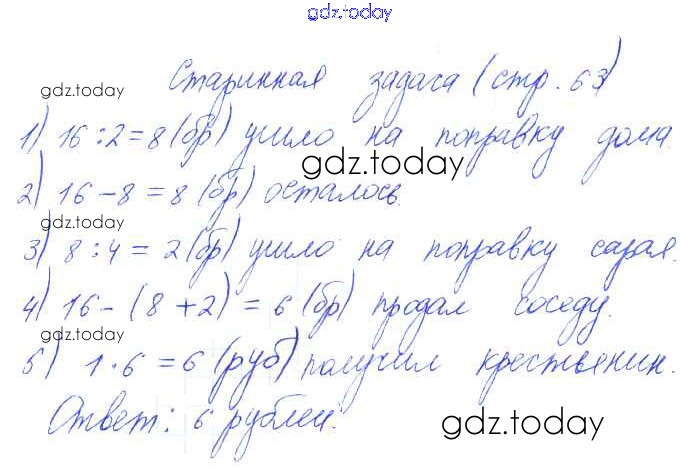 gdz.today
Старинная задача (стр. 63)
gdz.today
1) 16 : 2 = 8 (бр) ушло на поправку дома.
gdz.today
2) 16 - 8 = 8 (бр) осталось.
gdz.today
3) 8 : 4 = 2 (бр) ушло на поправку сарая.
4) 16 - (8 + 2) = 6 (бр) продал соседу.
gdz.today
5) 1 · 6 = 6 (руб) получил крестьянин.
Ответ: 6 рублей.
gdz.today